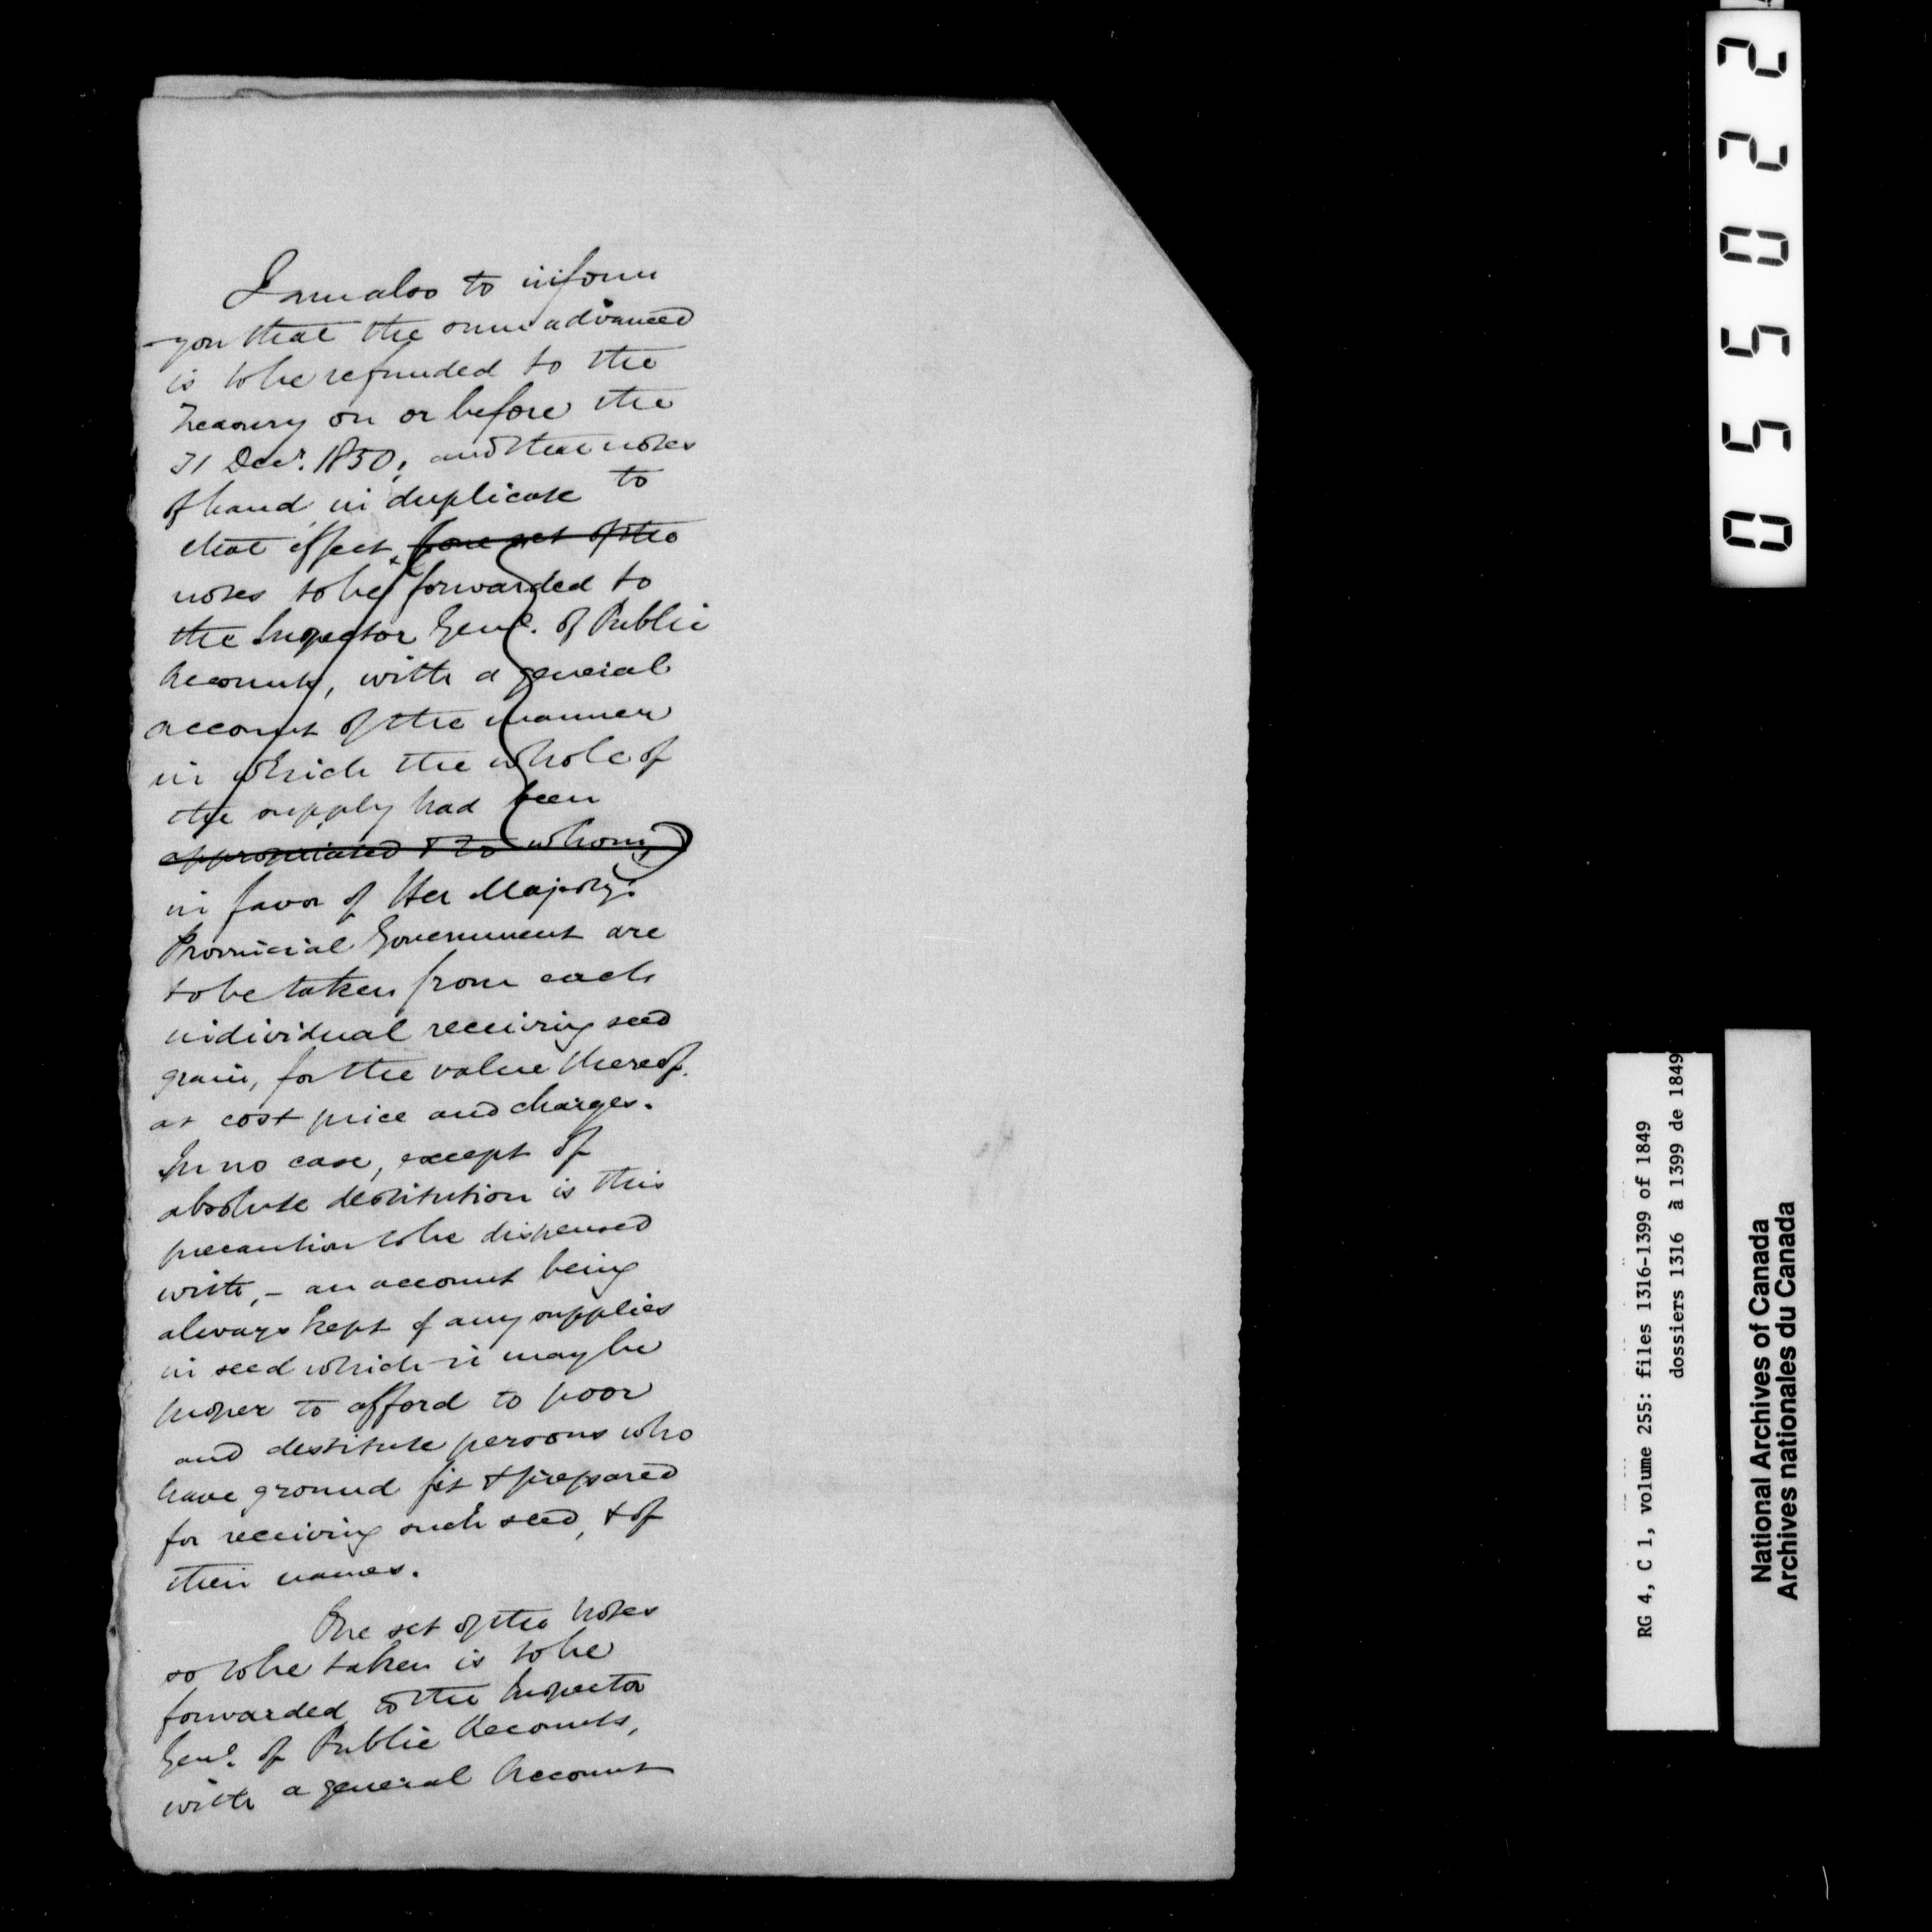 I am also to inform
you that the sum advanced
is to be refunded to the
Treasury on or before the
31 Decr. 1850; and that notes
of hand in duplicate to
that effect (one set of the
notes to be forwarded to
the Inspector Genl. of Public
Accounts, with a general
account of the manner
in which the whole of
the supply had been
appropriated & to whom,)
in favor of Her Majesty's
Provincial Government are
to be taken from each
individual receiving seed
grain, for the value thereof
at cost price and charges.
In no case, except of
absolute destitution is this
precaution to be dispensed
with, - an account being
always kept of any supplies
in seed which it may be
proper to afford to poor
and destitute persons who
have ground fit & prepared
for receiving such seed, & of
their names.
One set of the notes
so to be taken is to be
forwarded to the Inspector
Genl. of Public Accounts,
with a general Account
055022
RG 4, C 1, volume 255: files 1316-1399 of 1849
dossiers 1316 à 1399 de 1849
National Archives of Canada
Archives nationales du Canada